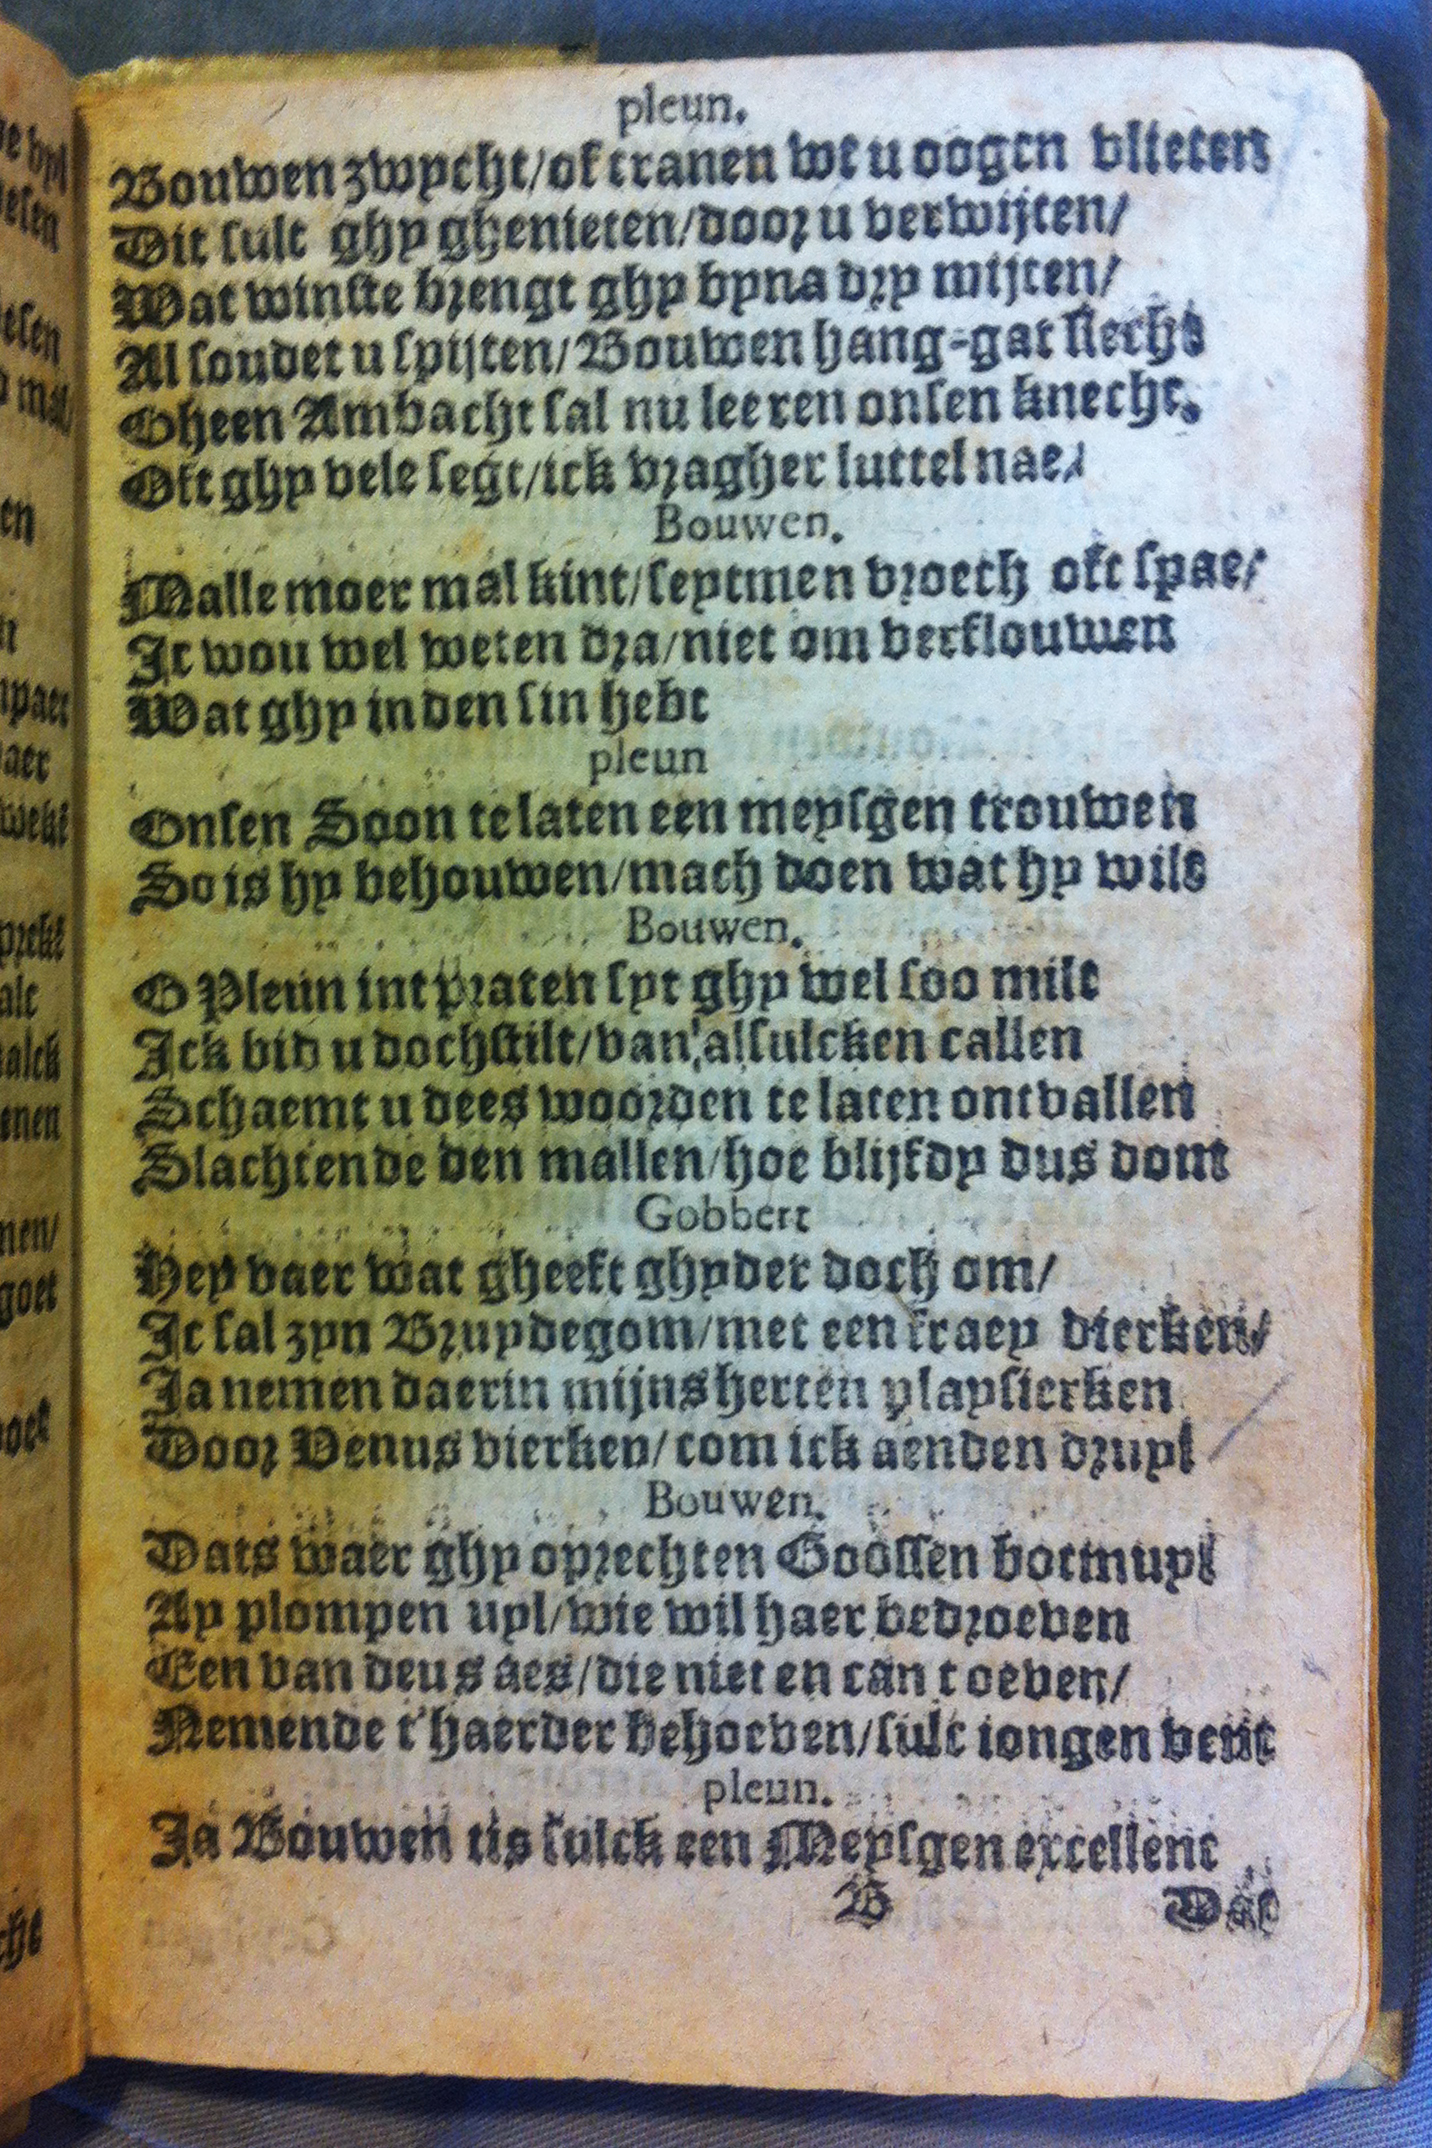 pleun.
Bouwen zwycht/oft tranen wt u oogen vlieten
Dit sult ghy ghenieten/door u verwijten/
Wat winste brengt ghy byna dry mijten/
Al soudet u spijten/Bouwen hang-gat slecht
Gheen Ambacht sal nu leeren onsen knecht.
Oft ghy vele segt/ick vragher luttel nae/
Bouwen.
Malle moer mal kint/seytmen vroech oft spae/
Ic wou wel weten dra/niet om verflouwen
Wat ghy in den sin hebt
pleun
Onsen Soon te laten een meysgen trouwen
So is hy behouwen/mach doen wat hy wilt
Bouwen.
O Pleun int praten syt ghy wel soo milt
Ick bid u doch stilt/van alsulcken callen
Schaemt u dees woorden te laten ontvallen
Slachtende den mallen/hoe blijfdy dus dom
Gobbert
Hey vaer wat gheeft ghyder doch om/
Ic sal zyn Bruydegom/met een fraey dierken/
Ja nemen daerin mijns herten playsierken
Door Venus vierken/com ick aenden druyt
Bouwen.
Dats waer ghy oprechten Goossen botmuyl
Ay plompen uyl/wie wil haer bedroeven
Een van deus aes/die niet en can toeven/
Nemende t'haerder behoeven/sulc iongen vent
pleun.
Ja Bouwen tis sulck een Meysgen excellent
B
Dat